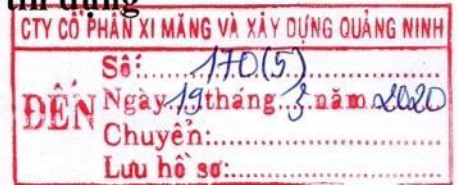 tín dụng
CTY CỔ PHẦN XI MĂNG VÀ XÂY DỰNG QUẢNG NINH
ĐẾN
Số:.....170(5)..................
Ngày.19.tháng..3.năm.2020
Chuyển:............................
Lưu hồ sơ:..........................